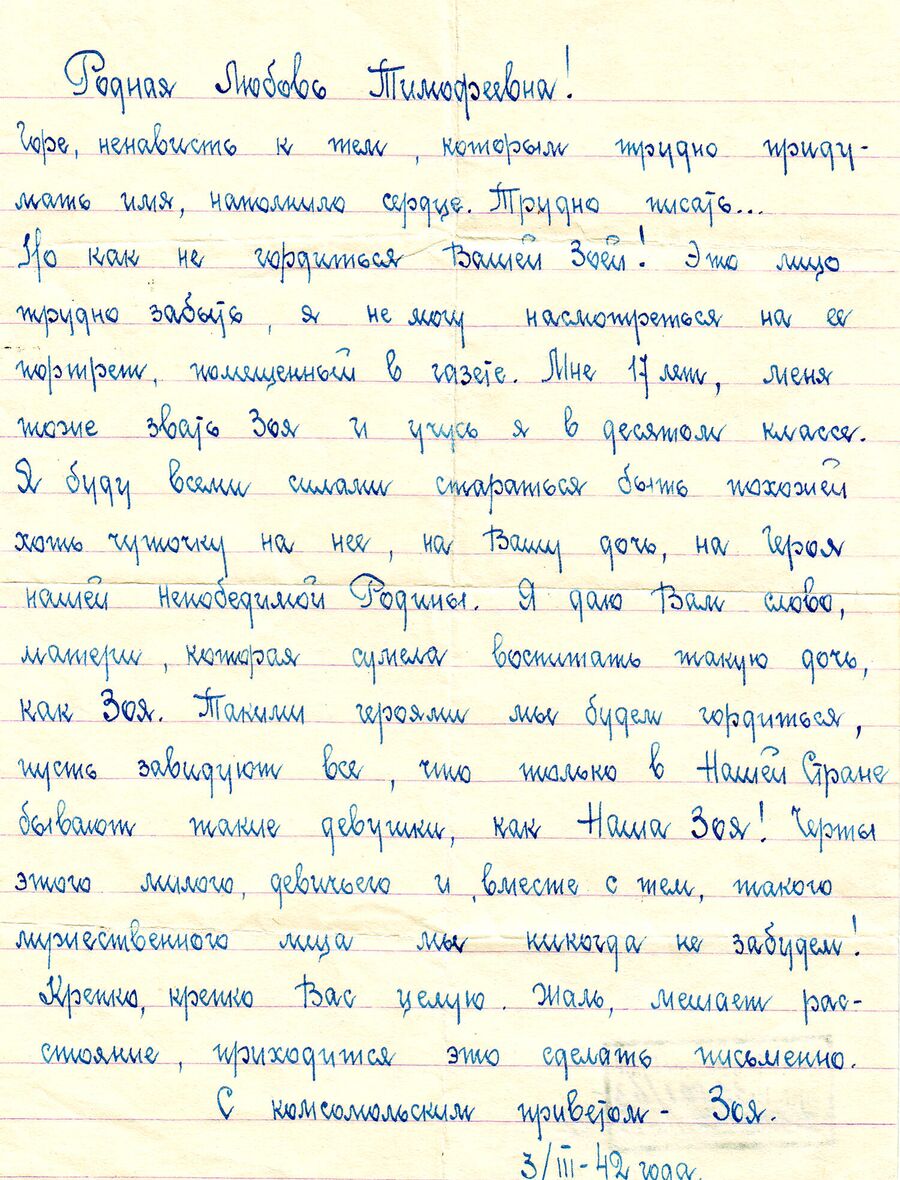 Родная Любовь Тимофеевна!
Горе, ненависть к тем, которым трудно приду-
мать имя, наполнило сердце. Трудно писать...
Но как не гордиться Вашей Зоей! Это лицо
трудно забыть, я не могу насмотреться на ее
портрет, помещенный в газете. Мне 17 лет, меня
тоже звать Зоя и учусь я в десятом классе.
Я буду всеми силами стараться быть похожей
хоть чуточку на нее, на Вашу дочь, на Героя
нашей непобедимой Родины. Я даю Вам слово,
матери, которая сумела воспитать такую дочь,
как Зоя. Такими героями мы будем гордиться,
пусть завидуют все, что только в Нашей Стране
бывают такие девушки, как Наша Зоя! Черты
этого милого, девичьего и, вместе с тем, такого
мужественного лица мы никогда не забудем!
Крепко, крепко Вас целую. Жаль, мешает рас-
стояние, приходится это сделать письменно.
С комсомольским приветом - Зоя.
3/III-42 года.